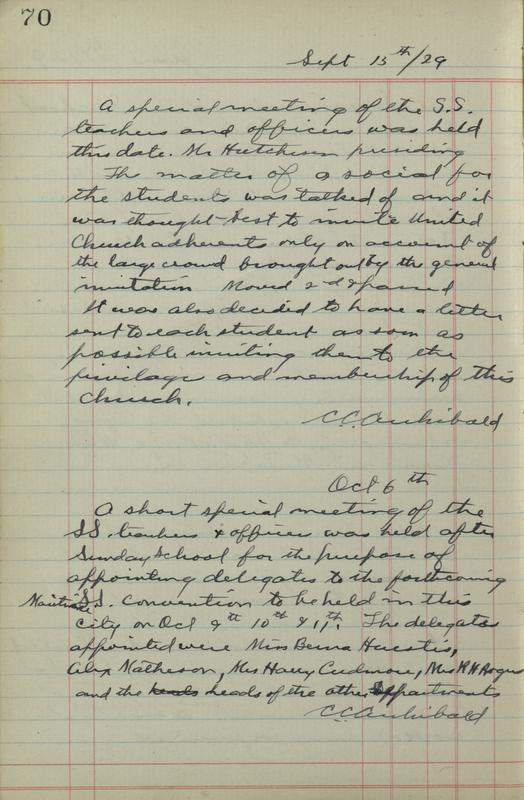 70
Sept 15th/29
A special meeting of the S.S.
teachers and officers was held
this date. Mr Hutchison presiding
The matter of a social for
the students was talked of and it
was thought best to invite United
Church adherents only on account of
the large crowd brought out by the general
invitation Moved 2nd & passed
It was also decided to have a letter
sent to each student as soon as
possible inviting them to the
privilage and membership of this
Church.
C.C. Archibald
Oct 6th
A short special meeting of the
S.S. teachers & officers was held after
Sunday School for the purpose of
appointing delegates to the forthcoming
Maritime S.S. Convention to be held in this
city on Oct 9th 10th & 11th. The delegates
appointed were Miss Berna Huestis,
Alex Matheson, Mrs Harry Cudmore, Mrs R H Rogers
and the heads heads of the other Departments
C.C. Archibald